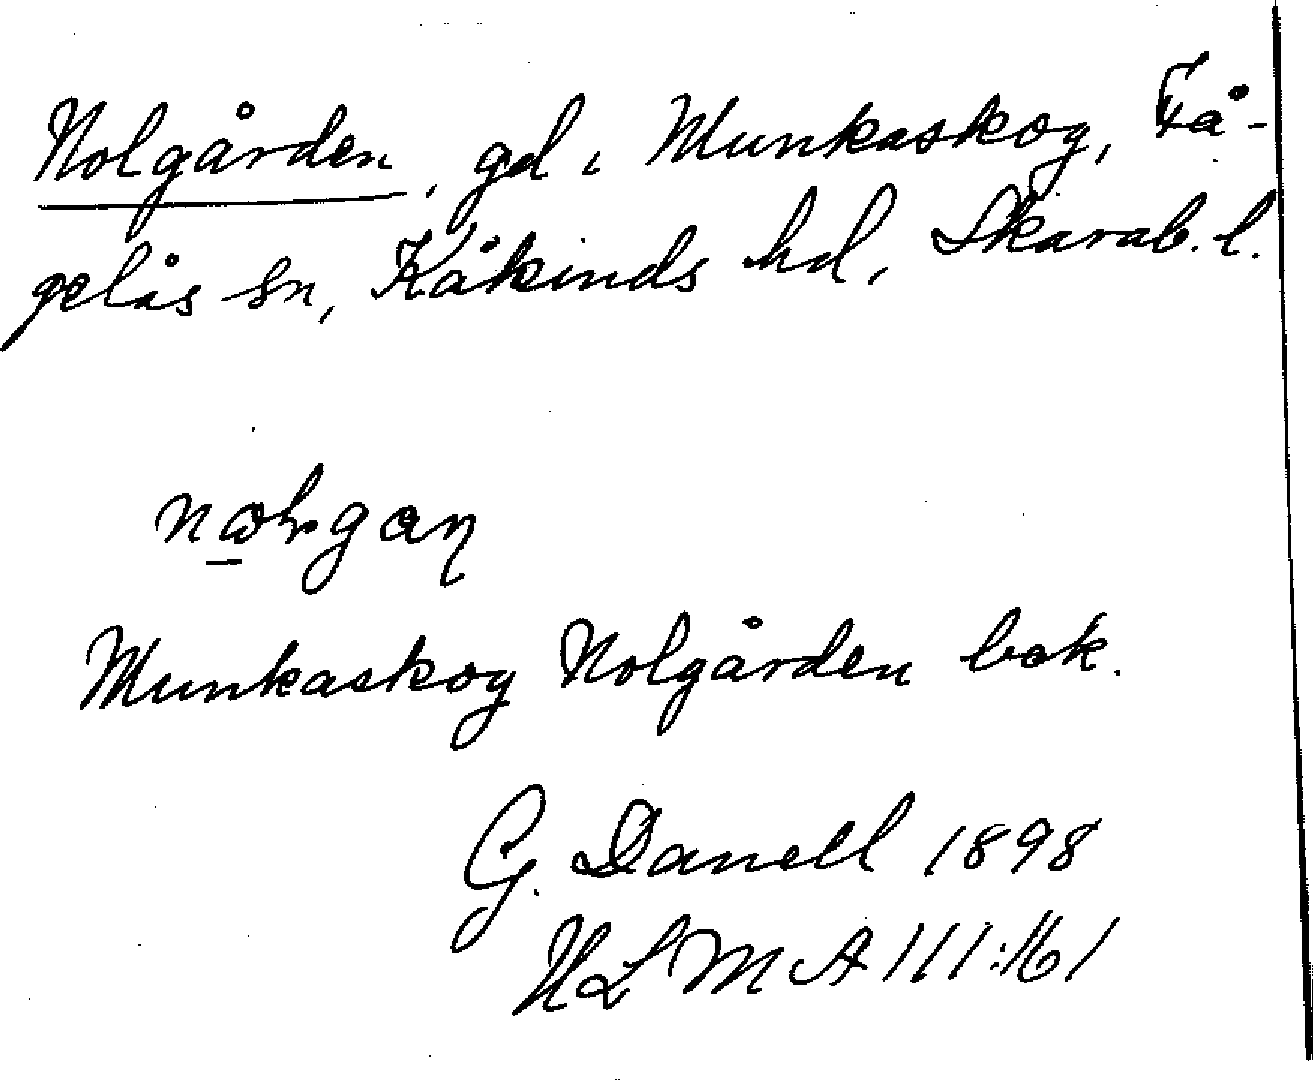 Nolgården, gd i Munkaskog, Få-
gelås sn, Kåkinds hd, Skarab. l.
Munkaskog Nolgården bok.
G. Danell 1898
ULMA 111:161